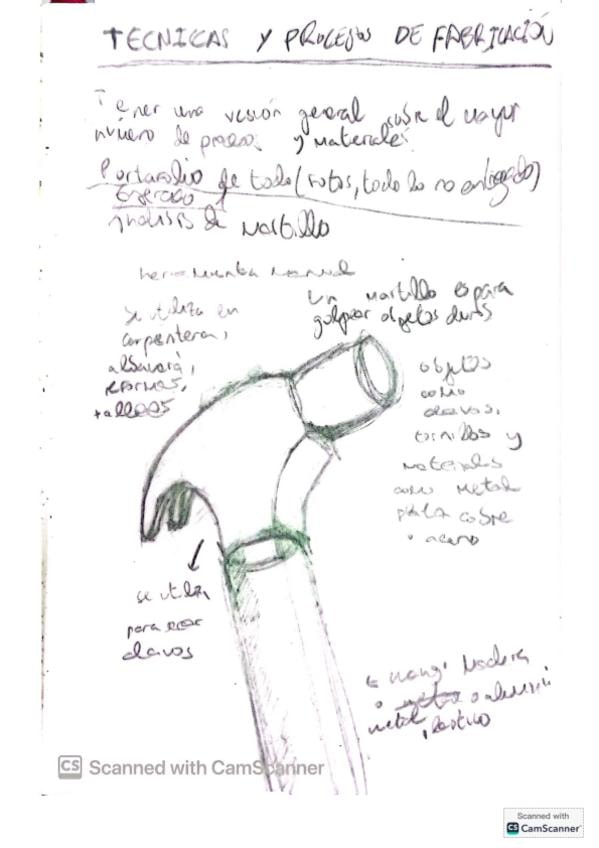 TECNICAS Y PROCESOS DE FABRICACIÓN
Tener una vesión general sobre el mayor
número de procesos y materiales
Portafolio de todo (fotos, todo lo no entregado)
Análisis de Martillo
herramienta manual
se utiliza en
carpintera,
albañará,
reformas,
talleres
Un martillo es para
golpear objetos duros
objetos
como
clavos,
tornillos y
materiales
como metal
plata cobre
o acero
se utiliza
para
clavos
Madera
o o aluminio
metal, plástico
CS Scanned with CamScanner
Scanned with
CS CamScanner